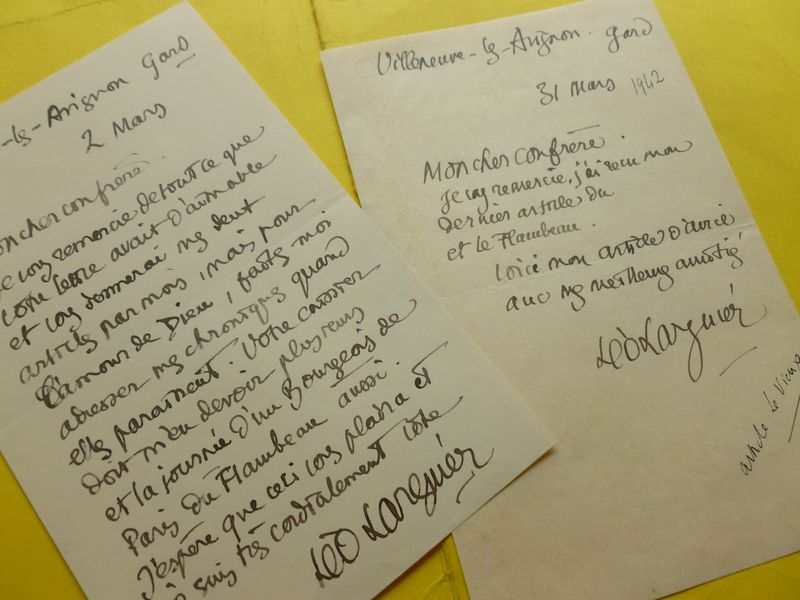 -lès-Avignon Gard
2 Mars
mon cher confrère.
Je vous remercie de tout ce que
votre lettre avait d'aimable
et vous donnerai mes deux
articles par mois, mais pour
l'amour de Dieu, faites moi
adresser mes chroniques quand
elles paraissent. Votre caissier
doit m'en devoir plusieurs
et la journée d'un Bourgeois de
Paris du Flambeau aussi.
J'espère que ceci vous plaira et
suis très cordialement vôtre
Léo Larguier
Villeneuve-lès-Avignon. Gard
31 mars 1942
Mon cher confrère.
Je vous remercie, j'ai reçu mon
dernier article du
et le Flambeau.
Voici mon article d'avril
avec mes meilleures amitiés
Léo Larguier
article le Vieux